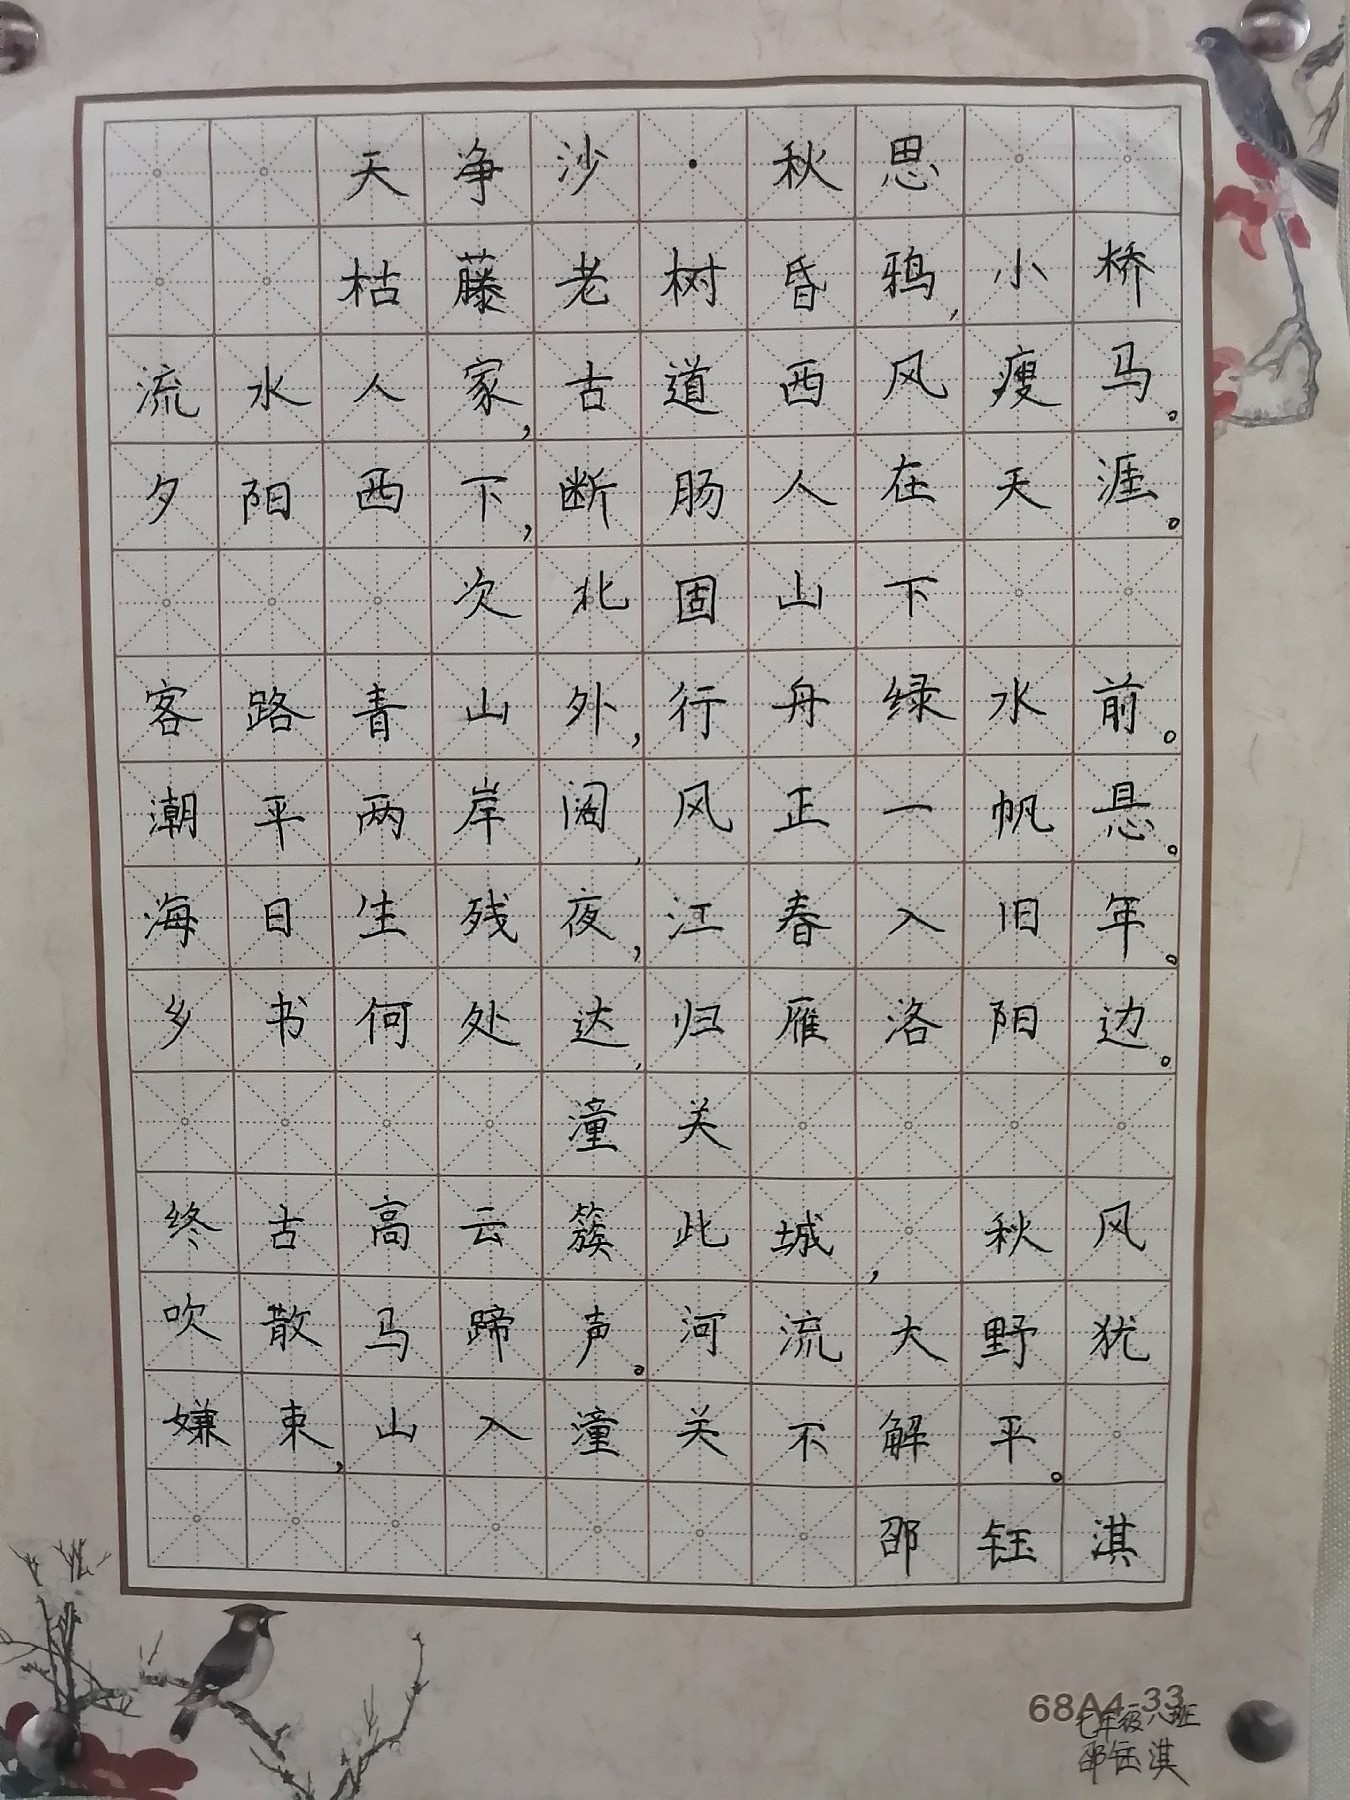 天净沙·秋思
枯藤老树昏鸦,小桥
流水人家,古道西风瘦马。
夕阳西下,断肠人在天涯。
次北固山下
客路青山外,行舟绿水前。
潮平两岸阔,风正一帆悬。
海日生残夜,江春入旧年。
乡书何处达,归雁洛阳边。
潼关
终古高云簇此城,秋风
吹散马蹄声。河流大野犹
嫌束,山入潼关不解平。
邵钰淇
68A4-33
七年级八班
邵钰淇